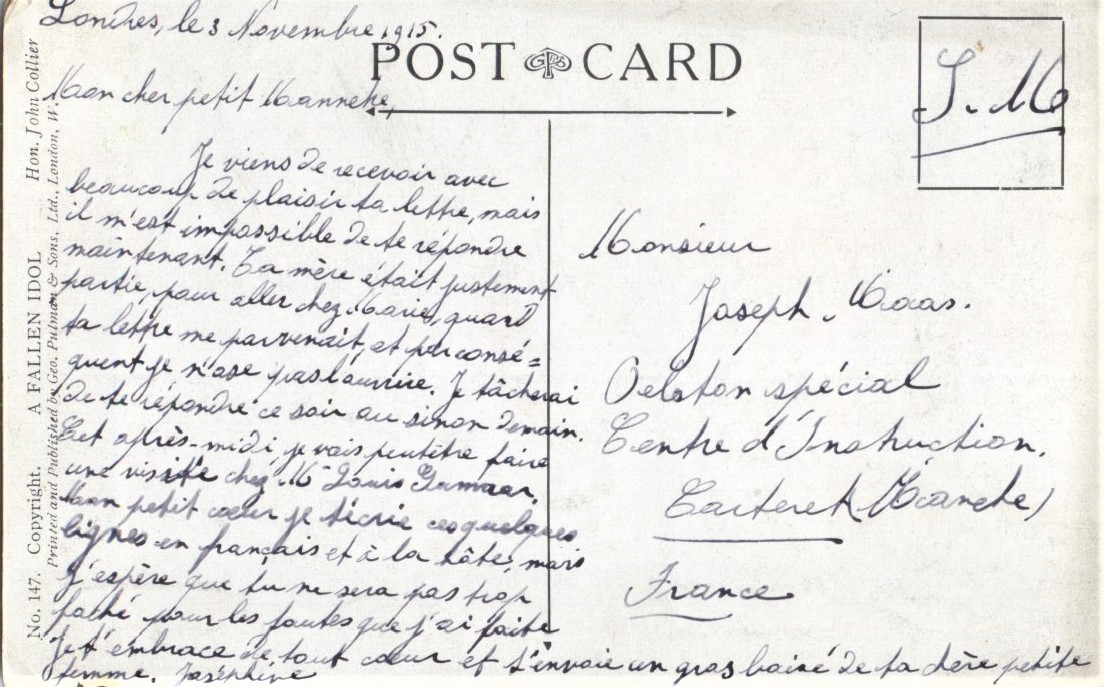 Londres, le 3 Novembre 1915.
POST CARD
Mon cher petit Manneke,
Je viens de recevoir avec
beaucoup de plaisir ta lettre, mais
il m'est impossible de te répondre
maintenant. Ta mère était justement
partie, pour aller chez Marie, quand
ta lettre me parvenait, et par consé=
quent je n'ose pas l'ouvrire. Je tâcherai
de te répondre ce soir ou sinon demain.
Cet après-midi je vais peutêtre faire
une visite chez Mr Louis
Mon petit cœur je t'écrie ces quelques
lignes en français et à la hâte, mais
j'espère que tu ne sera pas trop
faché pour les fautes que j'ai faite
Je t'embrace de tout cœur et t'envoie un gros baisé de ta chère petite
femme. Joséphine
S. M
Monsieur
Joseph Maas.
Peloton spécial
Centre d'Instruction.
Carteret (Manche)
France
No. 147. Copyright. A FALLEN IDOL Hon. John Collier
Printed and Published by Geo. Pulman & Sons, Ltd., London, W.